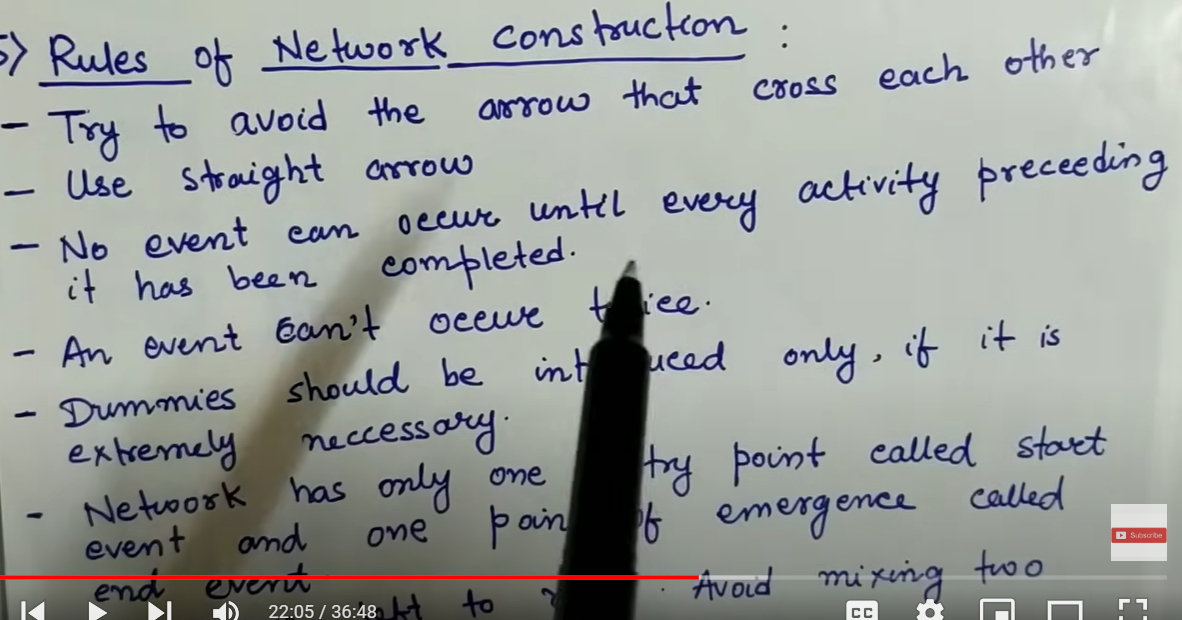 5) Rules of Network construction :
- Try to avoid the arrow that cross each other
- Use straight arrow
- No event can occur until every activity preceeding
it has been completed.
- An event can't occur
- Dummies should be only, if it is
extremely neccessary.
- Network has only one point called start
event and one emergence called
end event
to . Avoid mixing two
Subscribe
22:05 / 36:48
CC